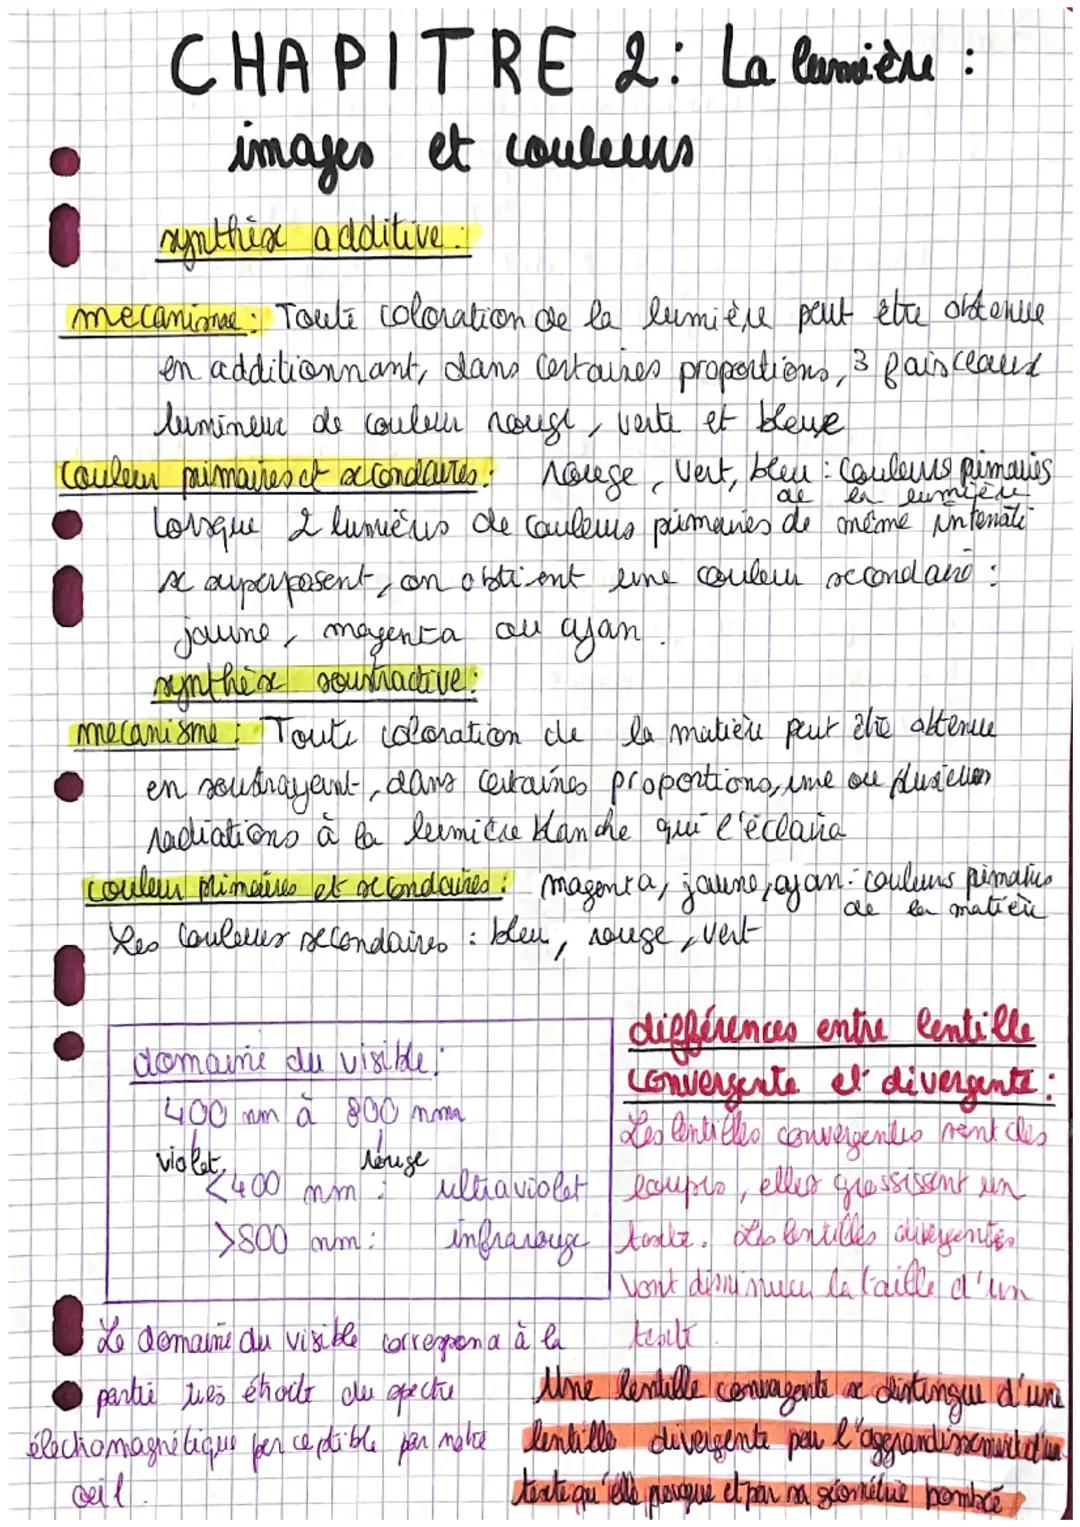 CHAPITRE 2: La lumière :
images et couleurs
synthèse additive :
mecanisme : Toute coloration de la lumière peut être obtenue
en additionnant, dans certaines proportions, 3 faisceaux
lumineux de couleur rouge, verte et bleue
Couleur primaires et secondaires : rouge, vert, bleu : couleurs primaires
de la lumière
Lorsque 2 lumières de couleurs primaires de même intensité
se superposent, on obtient une couleur secondaire :
jaune, magenta ou cyan.
synthèse soustractive :
mecanisme : Toute coloration de la matière peut être obtenue
en soustrayant, dans certaines proportions, une ou plusieurs
radiations à la lumière blanche qui l'éclaire
couleur primaires et secondaires : magenta, jaune, cyan : couleurs primaires
de la matière
Les couleurs secondaires : bleu, rouge, vert
domaine du visible :
400 nm à 800 nm
violet rouge
<400 nm : ultraviolet
>800 nm : infrarouge
Le domaine du visible correspond à la
partie très étroite du spectre
électromagnétique perceptible par notre
oeil.
différences entre lentille
convergente et divergente :
Les lentilles convergentes sont des
loupes, elles grossissent un
texte. Les lentilles divergentes
vont diminuer la taille d'un
texte.
Une lentille convergente se distingue d'une
lentille divergente par l'aggrandissement d'un
texte qu'elle provoque et par sa géométrie bombée